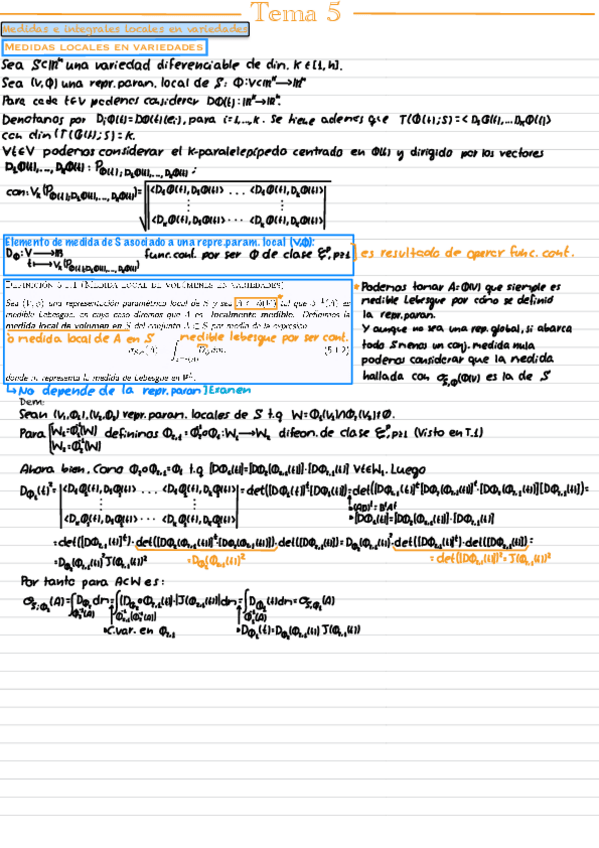 Tema 5
Medidas e integrales locales en variedades
MEDIDAS LOCALES EN VARIEDADES
Sea S⊂ℝⁿ una variedad diferenciable de dim. K∈[1,n].
Sea (V,Φ) una repr. param. local de S: Φ:V⊂ℝᵏ→ℝⁿ
Para cada t∈V podemos considerar DΦ(t):ℝᵏ→ℝⁿ.
Denotamos por DᵢΦ(t)=DΦ(t)(eᵢ), para i=1,...,k. Se tiene además que T(Φ(t);S)=<D₁Φ(t),...,DₖΦ(t)>
con dim(T(Φ(t);S)=K.
∀t∈V podemos considerar el K-paralelepípedo centrado en Φ(t) y dirigido por los vectores
D₁Φ(t),...,DₖΦ(t): P_{Φ(t);D₁Φ(t),...,DₖΦ(t)};
con: Vₖ(P_{Φ(t);D₁Φ(t),...,DₖΦ(t)})= √|<D₁Φ(t),D₁Φ(t)> ... <D₁Φ(t),DₖΦ(t)>|
⋮ ⋮
|<DₖΦ(t),D₁Φ(t)> ... <DₖΦ(t),DₖΦ(t)>|
Elemento de medida de S asociado a una repre. param. local (V,Φ):
D_Φ:V→ℝ func. cont. por ser Φ de clase ℰᵖ, p≥1 es resultado de operar func. cont.
t→Vₖ(P_{Φ(t);D₁Φ(t),...,DₖΦ(t)})
DEFINICIÓN 5.1.1 (MEDIDA LOCAL DE VOLÚMENES EN VARIEDADES)
Sea (V,Φ) una representación paramétrica local de S y sea A ⊂ Φ(V) tal que Φ⁻¹(A) es
medible Lebesgue, en cuyo caso diremos que A es localmente medible. Definimos la
medida local de volumen en S del conjunto A ⊆ S por medio de la expresión
o medida local de A en S medible lebesgue por ser cont.
σ_{S,Φ}(A) = ∫_{Φ⁻¹(A)} D_Φ dm, (5.1.2)
donde m representa la medida de Lebesgue en ℝᵏ.
Podemos tomar A=Φ(V) que siempre es
medible Lebesgue por cómo se definió
la repr. param.
Y aunque no sea una rep. global, si abarca
todo S menos un conj. medida nula
podemos considerar que la medida
hallada con σ_{S,Φ}(Φ(V)) es la de S
↳No depende de la repr. param] Examen
Dem:
Sean (V₁,Φ₁),(V₂,Φ₂) repr. param. locales de S t.q W=Φ₁(V₁)∩Φ₂(V₂)≠∅.
Para [W₁=Φ₁⁻¹(W) definimos Φ₂,₁=Φ₂⁻¹∘Φ₁:W₁→W₂ difeom. de clase ℰᵖ, p≥1 (Visto en T.1)
[W₂=Φ₂⁻¹(W)
Ahora bien, como Φ₂∘Φ₂,₁=Φ₁ t.q [DΦ₁(t)]=[DΦ₂(Φ₂,₁(t))]·[DΦ₂,₁(t)] ∀t∈W₁. Luego
D_{Φ₁}(t)²=|<D₁Φ₁(t),D₁Φ₁(t)> ... <D₁Φ₁(t),DₖΦ₁(t)>|=det([DΦ₁(t)]ᵗ[DΦ₁(t)])=det([DΦ₂,₁(t)]ᵗ[DΦ₂(Φ₂,₁(t))]ᵗ·[DΦ₂(Φ₂,₁(t))][DΦ₂,₁(t)])=
⋮ ⋮ (AB)ᵗ=BᵗAᵗ
|<DₖΦ₁(t),D₁Φ₁(t)> ... <DₖΦ₁(t),DₖΦ₁(t)>| [DΦ₁(t)]=[DΦ₂(Φ₂,₁(t))]·[DΦ₂,₁(t)]
=det([DΦ₂,₁(t)]ᵗ)·det([DΦ₂(Φ₂,₁(t))]ᵗ[DΦ₂(Φ₂,₁(t))])·det([DΦ₂,₁(t)])=D_{Φ₂}(Φ₂,₁(t))²·det([DΦ₂,₁(t)]ᵗ)·det([DΦ₂,₁(t)])=
=D_{Φ₂}(Φ₂,₁(t))²J(Φ₂,₁(t))² =D_{Φ₂}(Φ₂,₁(t))² =det([DΦ₂,₁(t)])²=J(Φ₂,₁(t))²
Por tanto para A⊂W es:
σ_{S,Φ₂}(A)=∫_{Φ₂⁻¹(A)} D_{Φ₂}dm=∫(D_{Φ₂}∘Φ₂,₁(t))·|J(Φ₂,₁(t))|dm=∫_{Φ₁⁻¹(A)} D_{Φ₁}(t)dm=σ_{S,Φ₁}(A)
C.var. en Φ₂,₁ D_{Φ₁}(t)=D_{Φ₂}(Φ₂,₁(t))J(Φ₂,₁(t))